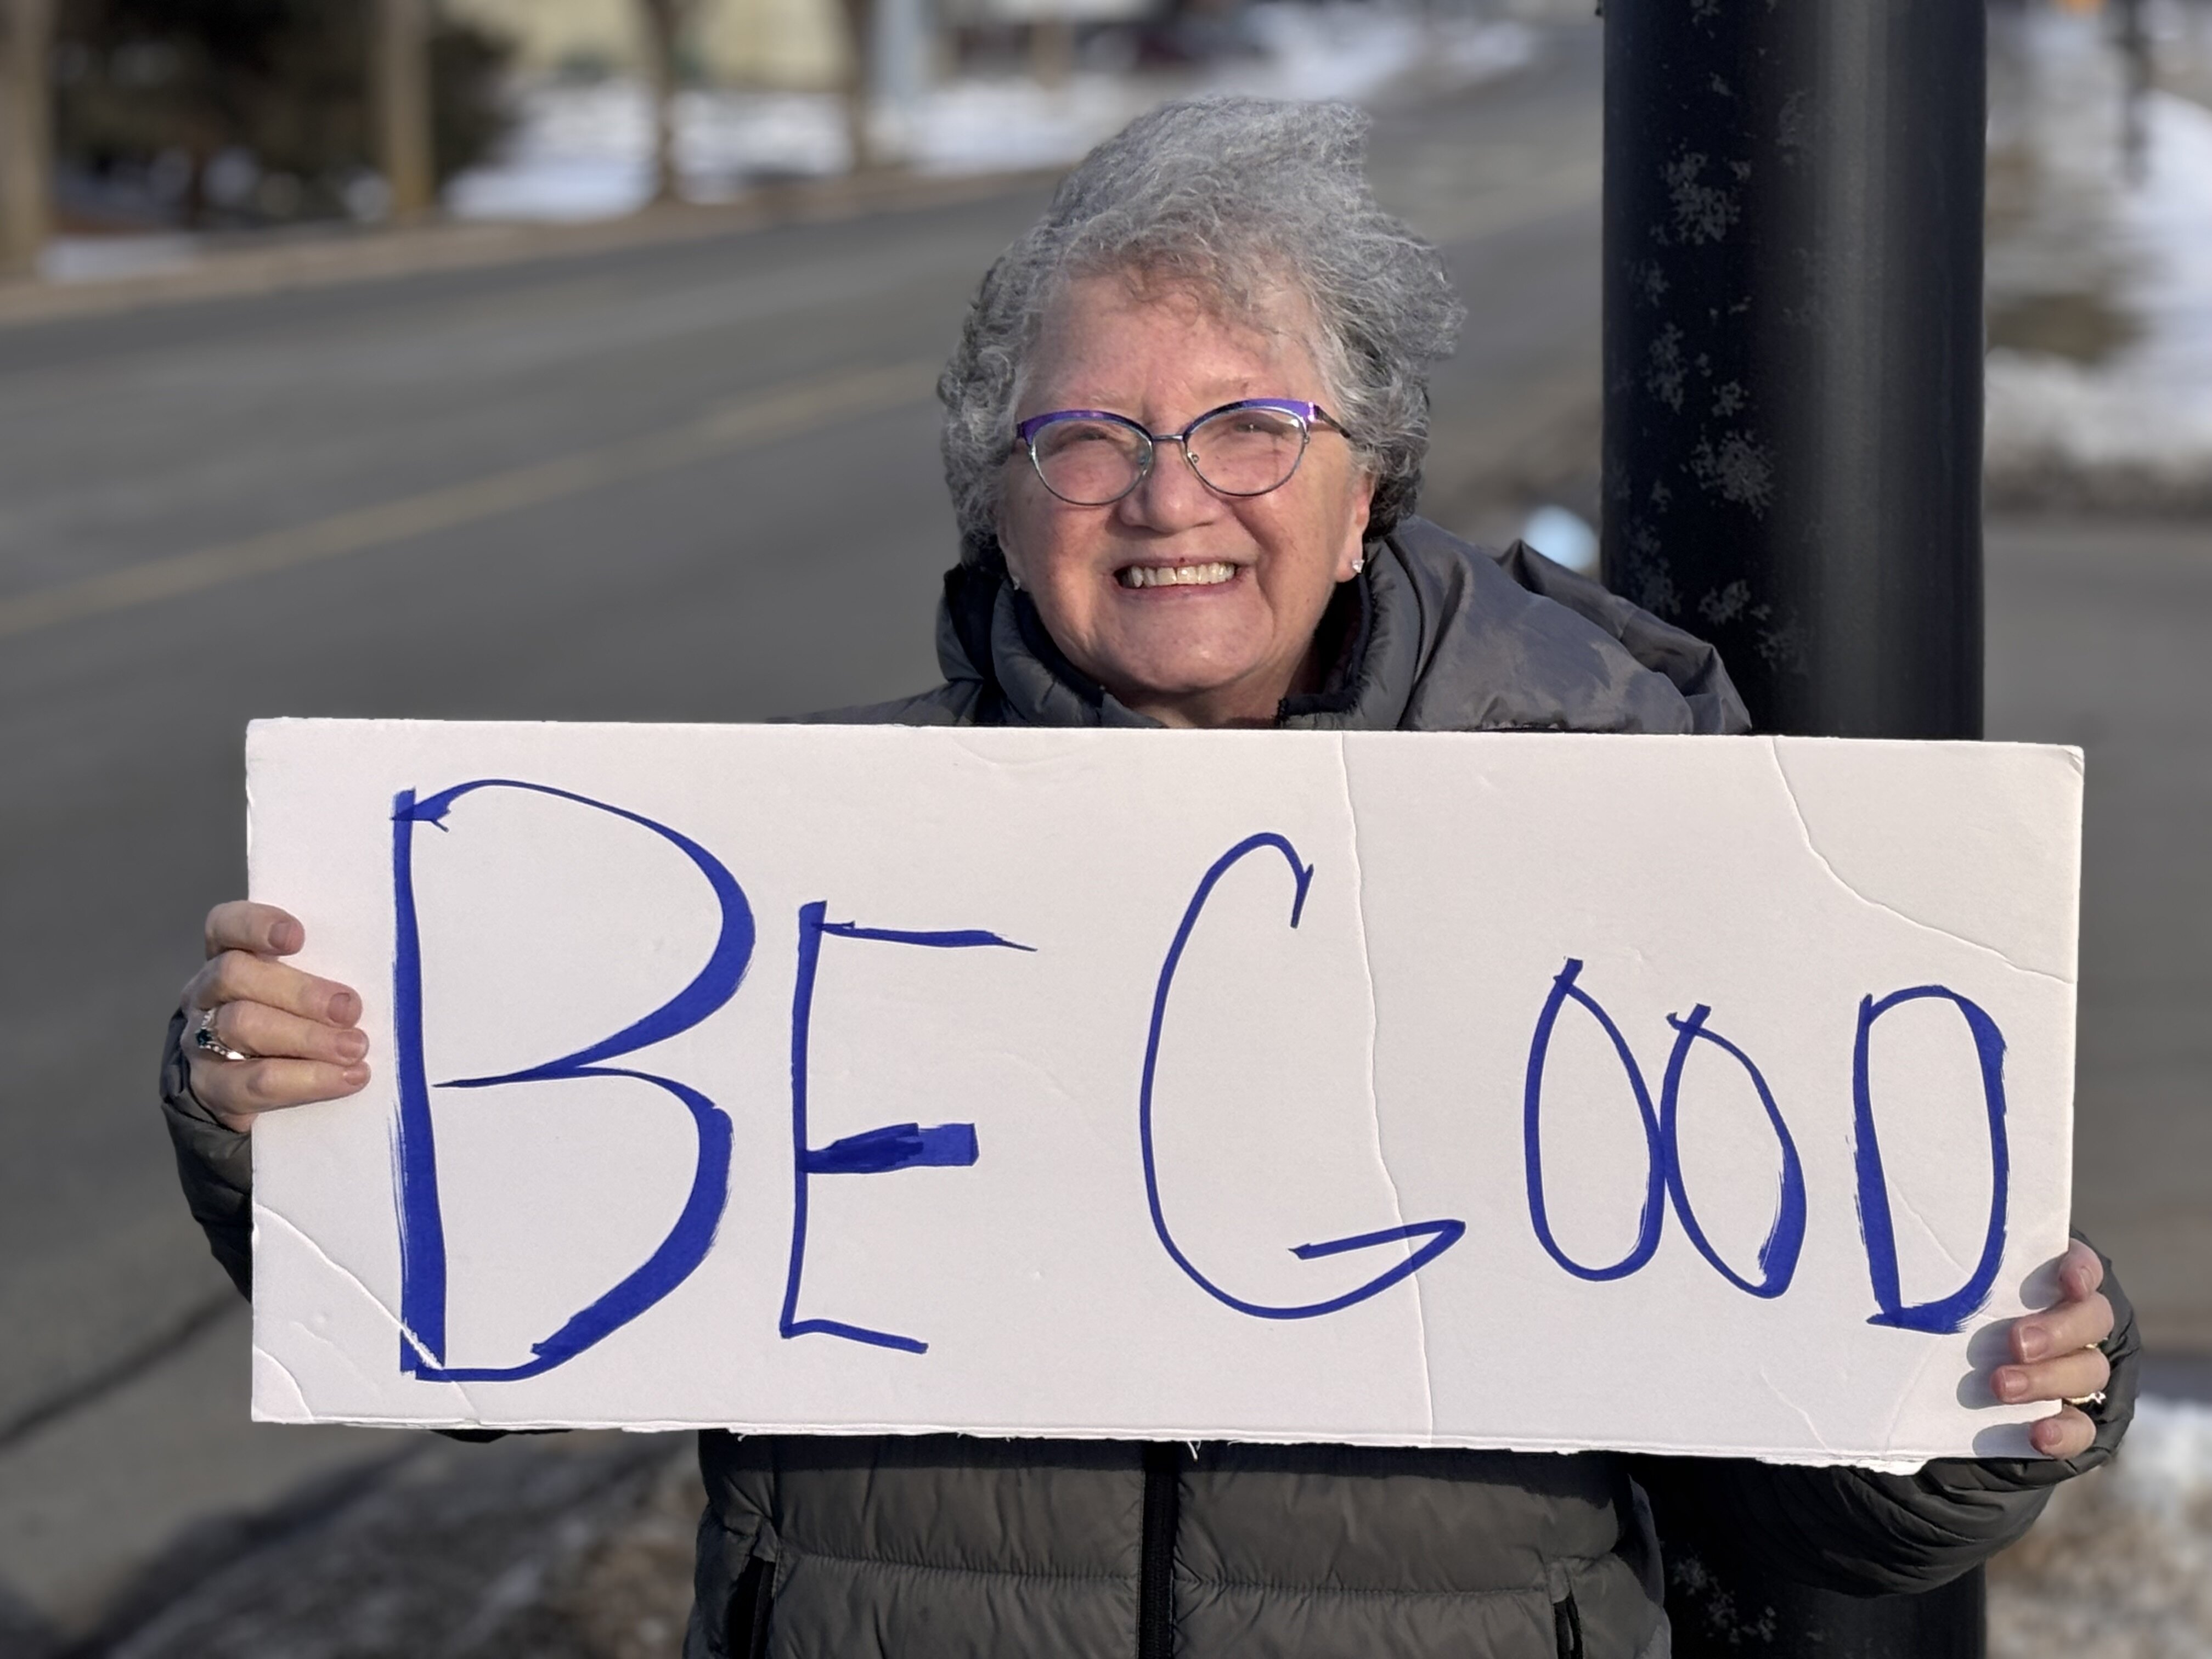 BE GOOD